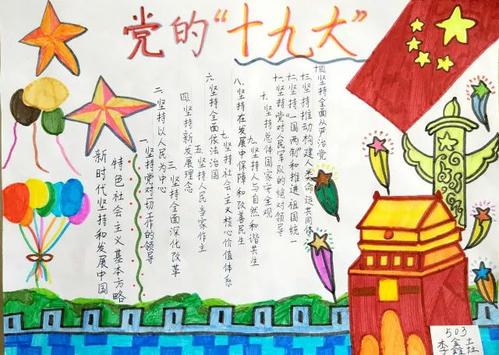 党的“十九大”
新时代坚持和发展中国
特色社会主义基本方略
一、坚持党对一切工作的领导
二、坚持以人民为中心
三、坚持全面深化改革
四、坚持新发展理念
五、坚持人民当家作主
六、坚持全面依法治国
七、坚持社会主义核心价值体系
八、坚持在发展中保障和改善民生
九、坚持人与自然和谐共生
十、坚持总体国家安全观
十一、坚持党对人民军队的绝对领导
十二、坚持“一国两制”和推进祖国统一
十三、坚持推动构建人类命运共同体
十四、坚持全面从严治党
503
李鑫